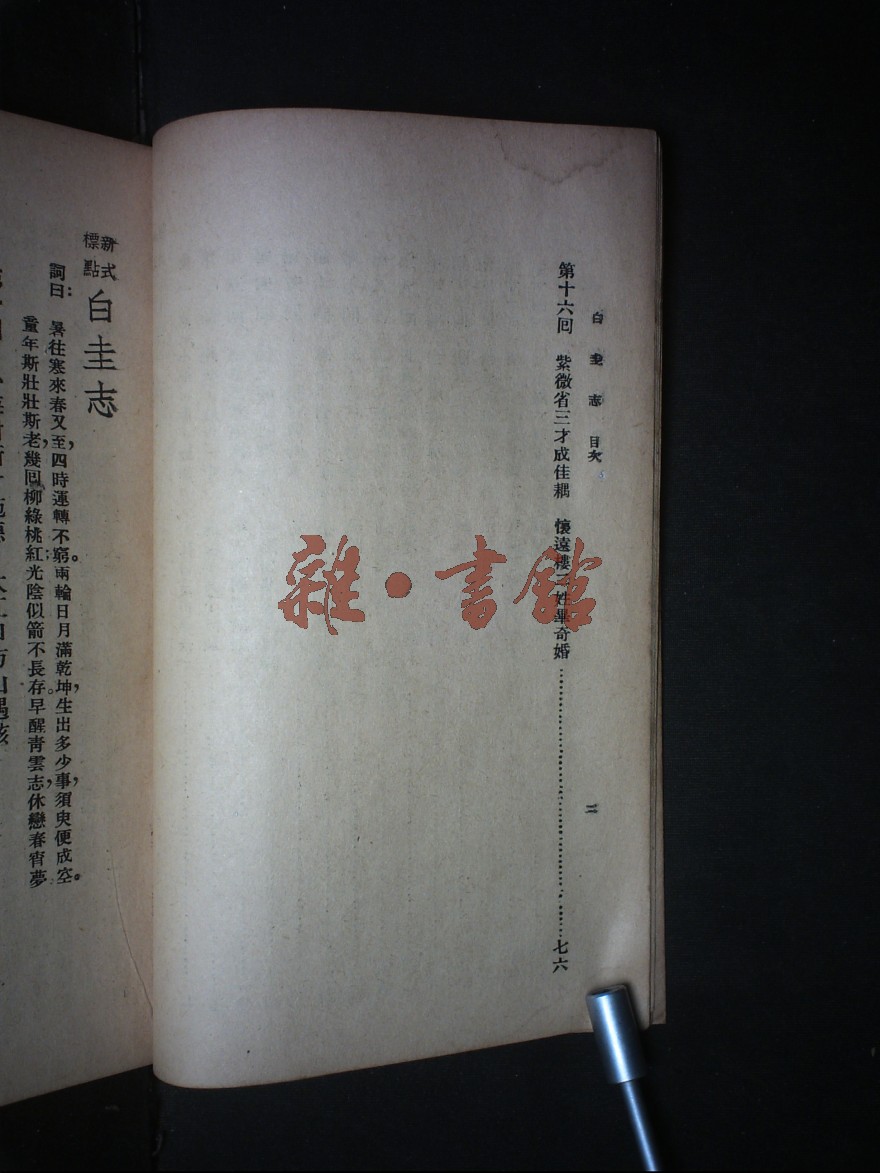 白圭志 目次
二
第十六回 紫微省三才成佳耦 懷遠樓二姓畢奇婚……七六
雜・書館
新式標點 白圭志
詞曰：暑往寒來春又至，四時運轉不窮。兩輪日月滿乾坤，生出多少事，須臾便成空。
童年斯壯壯斯老，幾回柳綠桃紅；光陰似箭不長存。早醒青雲志，休戀春宵夢